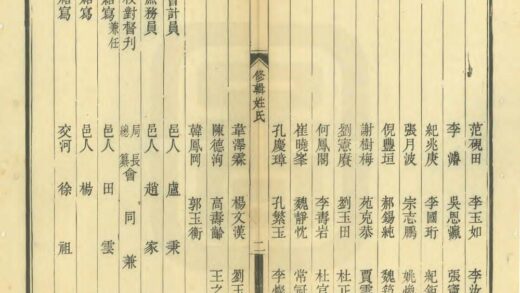 范硯田 李玉如 李
李濬 吳恩霈 張
紀兆庚 李國珩 紀
張月波 宗志鵬 姚
倪豐垣 郝錫純 魏
謝樹梅 苑克恭 賈雲
劉憲廣 劉玉田 杜正
何鳳閣 李青岩 杜官
崔曉峯 魏靜忱 常
孔慶璋 孔繁玉 李
修輯姓氏 二
韋澤霖 楊文漢 劉玉
陳德洵 高壽齡 王
韓鳳岡 郭玉衡
會計員 邑人 盧秉
庶務員 邑人 趙家
校對督刊 局長兼總纂 會同
繕寫兼任 邑人 田雲
繕寫 邑人 楊
繕寫 交河 徐祖